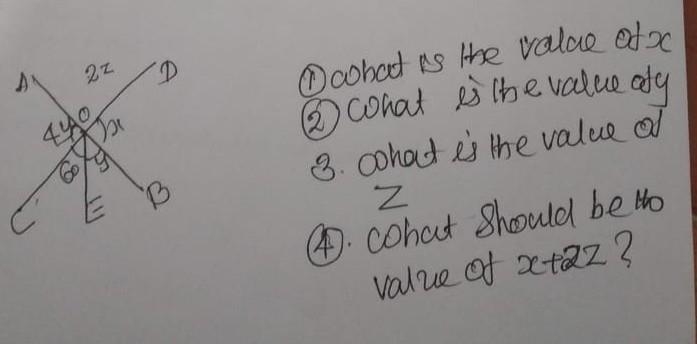 A 2z D
4y O x
60 y
C E B
① what is the value of x
② What is the value of y
3. what is the value of
z
④. what should be the
value of x+2z?